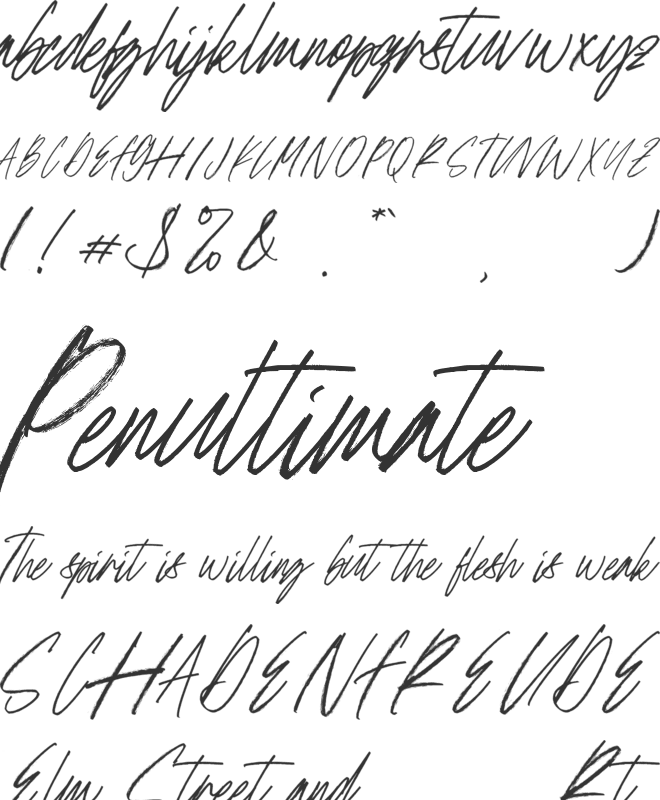 abcdefghijklmnopqrstuvwxyz
ABCDEFGHIJKLMNOPQRSTUVWXYZ
! # $ % & . * ` , )
Penultimate
The spirit is willing but the flesh is weak
SCHADENFREUDE
Elm Street and Rt